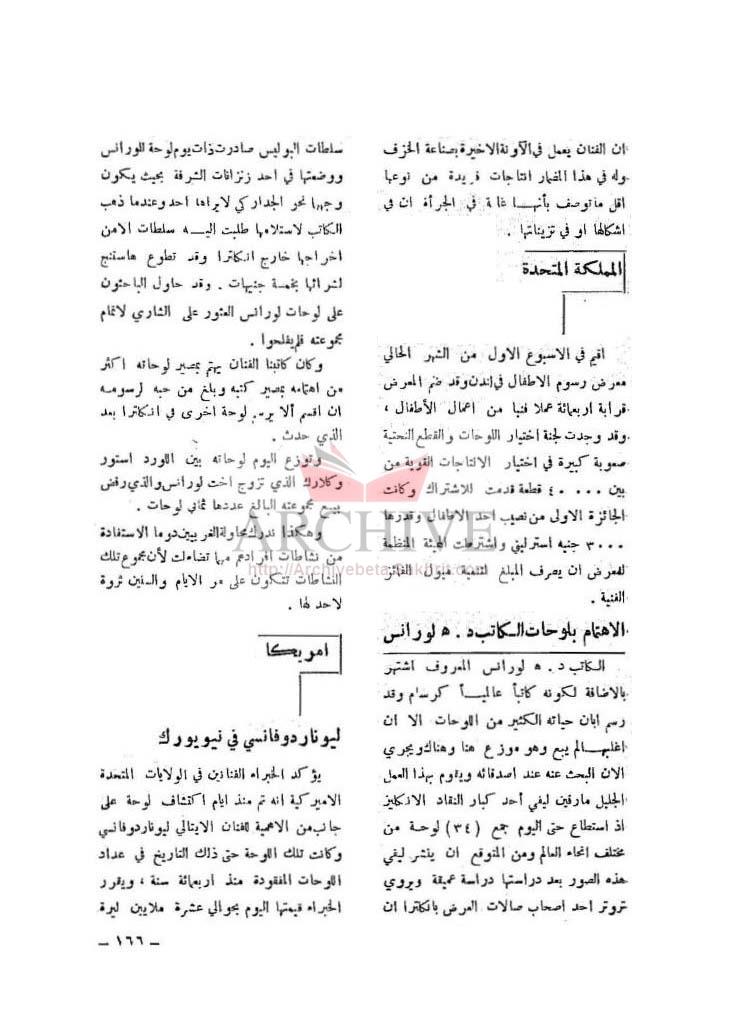 ان الفنان يعمل في الآونة الاخيرة بصناعة الخزف
وله في هذا المضمار انتاجات فريدة من نوعها
اقل ما توصف بأنها غاية في الجرأة ان في
اشكالها او في تزييناتها .
المملكة المتحدة
اقيم في الاسبوع الاول من الشهر الحالي
معرض رسوم الاطفال في لندن وقد ضم المعرض
قرابة اربعمائة عملا فنيا من اعمال الأطفال ،
وقد وجدت لجنة اختيار اللوحات والقطع النحتية
صعوبة كبيرة في اختيار الانتاجات القوية من
بين ٤٠٠٠٠ قطعة قدمت للاشتراك وكانت
الجائزة الاولى من نصيب احد الاطفال وقدرها
٣٠٠٠ جنيه استرليني واشترطت الهيئة المنظمة
للمعرض ان يصرف المبلغ لتنمية ميول الفائز
الفنية .
الاهتمام بلوحات الكاتب د . ه لورانس
الكاتب د . ه لورانس المعروف اشتهر
بالاضافة لكونه كاتباً عالمياً كرسام وقد
رسم ابان حياته الكثير من اللوحات الا ان
اغلبها لم يبع وهو موزع هنا وهناك ويجري
الان البحث عنه عند اصدقائه ويقوم بهذا العمل
الجليل مارفين ليفي أحد كبار النقاد الانكليز
اذ استطاع حتى اليوم جمع (٣٤) لوحة من
مختلف انحاء العالم ومن المتوقع ان ينشر ليفي
هذه الصور بعد دراستها دراسة عميقة ويروي
تروتر احد اصحاب صالات العرض بانكلترا ان
سلطات البوليس صادرت ذات يوم لوحة للورانس
ووضعتها في احد زنزانات الشرفة بحيث يكون
وجهها نحو الجدار كي لا يراها احد وعندما ذهب
الكاتب لاستلامها طلبت اليه سلطات الامن
اخراجها خارج انكلترا وقد تطوع هاستنج
لشرائها بخمسة جنيهات . وقد حاول الباحثون
على لوحات لورانس العثور على الشاري لاتمام
مجموعته فلم يفلحوا .
وكان كاتبنا الفنان يهتم بمصير لوحاته اكثر
من اهتمامه بمصير كتبه وبلغ من حبه لرسومه
ان اقسم ألا يرسم لوحة اخرى في انكلترا بعد
الذي حدث .
وتوزع اليوم لوحاته بين اللورد استور
وكلارك الذي تزوج اخت لورانس والذي رفض
بيع مجموعته البالغ عددها ثماني لوحات .
وهكذا ندرك محاولة الغربيين دوما الاستفادة
من نشاطات افرادهم مهما تضاءلت لأن مجموع تلك
النشاطات تتكون على مر الايام والسنين ثروة
لا حد لها .
امريكا
ليوناردوفانسي في نيويورك
يؤكد الخبراء الفنانين في الولايات المتحدة
الاميركية انه تم منذ ايام اكتشاف لوحة على
جانب من الاهمية للفنان الايتالي ليوناردوفانسي
وكانت تلك اللوحة حتى ذلك التاريخ في عداد
اللوحات المفقودة منذ اربعمائة سنة ، ويقرر
الخبراء قيمتها اليوم بحوالي عشرة ملايين ليرة
– ١٦٦ –
ARCHIVE
http://Archivebeta.Sakhrit.com